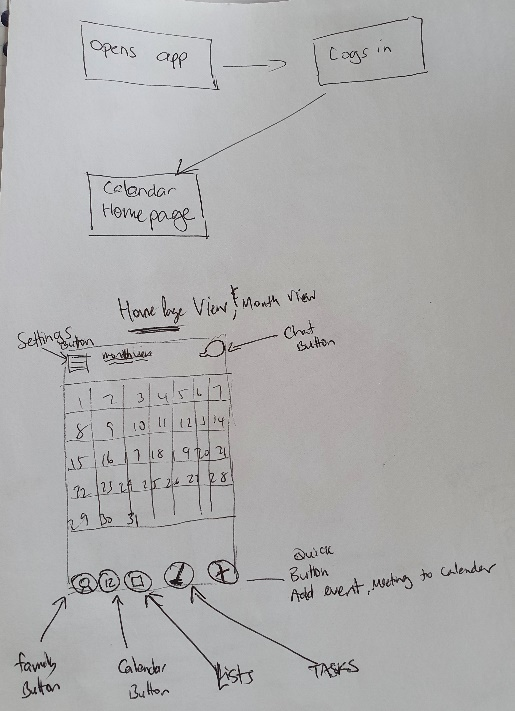 Opens app
Logs in
Calendar
Home page
Home Page View & Month View
Settings
Button
month view
Chat
Button
1 2 3 4 5 6 7
8 9 10 11 12 13 14
15 16 17 18 19 20 21
22 23 24 25 26 27 28
29 30 31
12
Quick
Button
Add event, Meeting to calendar
family
Button
Calendar
Button
Lists
TASKS